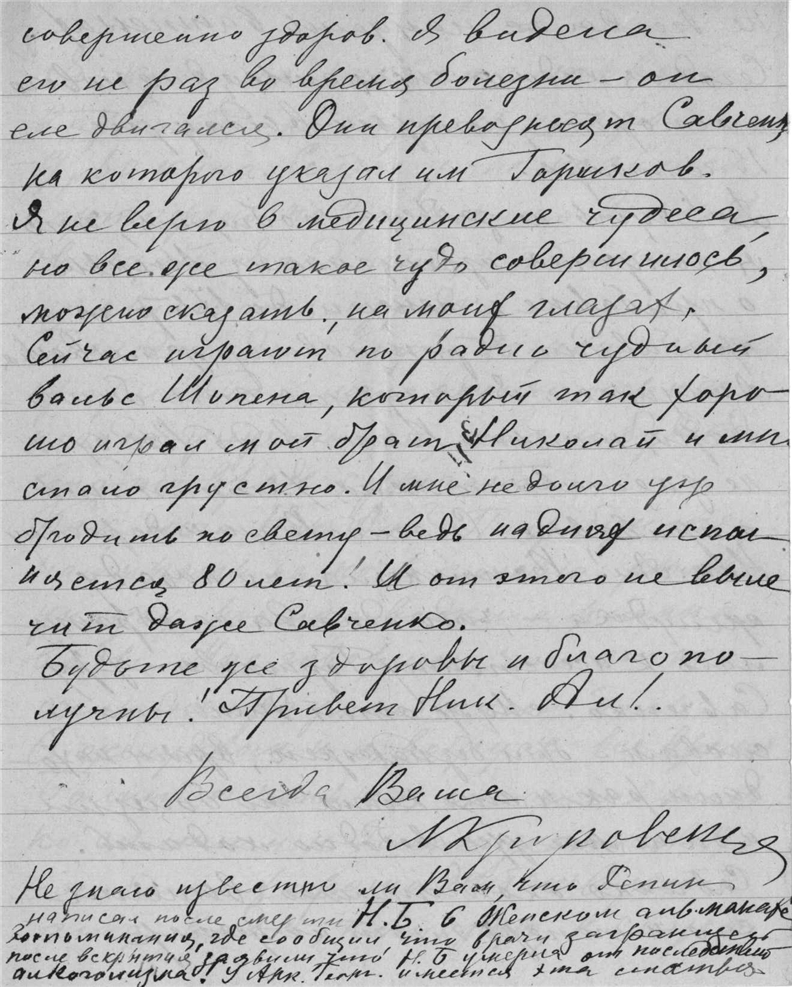 совершенно здоров. Я видела
его не раз во время болезни – он
еле двигался. Они превозносят Савченко,
на которого указал им Горшков.
Я не верю в медицинские чудеса,
но все же такое чудо совершилось,
можно сказать, на моих глазах.
Сейчас играют по радио чудный
вальс Шопена, который так хоро-
шо играл мой брат Николай и мне
стало грустно. И мне недолго уж
бродить по свету – ведь на днях испол
няется 80 лет! И от этого не выле
чит даже Савченко.
Будьте же здоровы и благопо-
лучны! Привет Ник. Ал!.
Всегда Ваша
Не знаю известно ли Вам, что Репин
написал после смерти Н.Б. в Женском альманахе
воспоминания, где сообщил, что врачи заграницей
после вскрытия заявили что Н.Б умерла от последствий
алкоголизма! У Арк. Георг. имеется эта статья